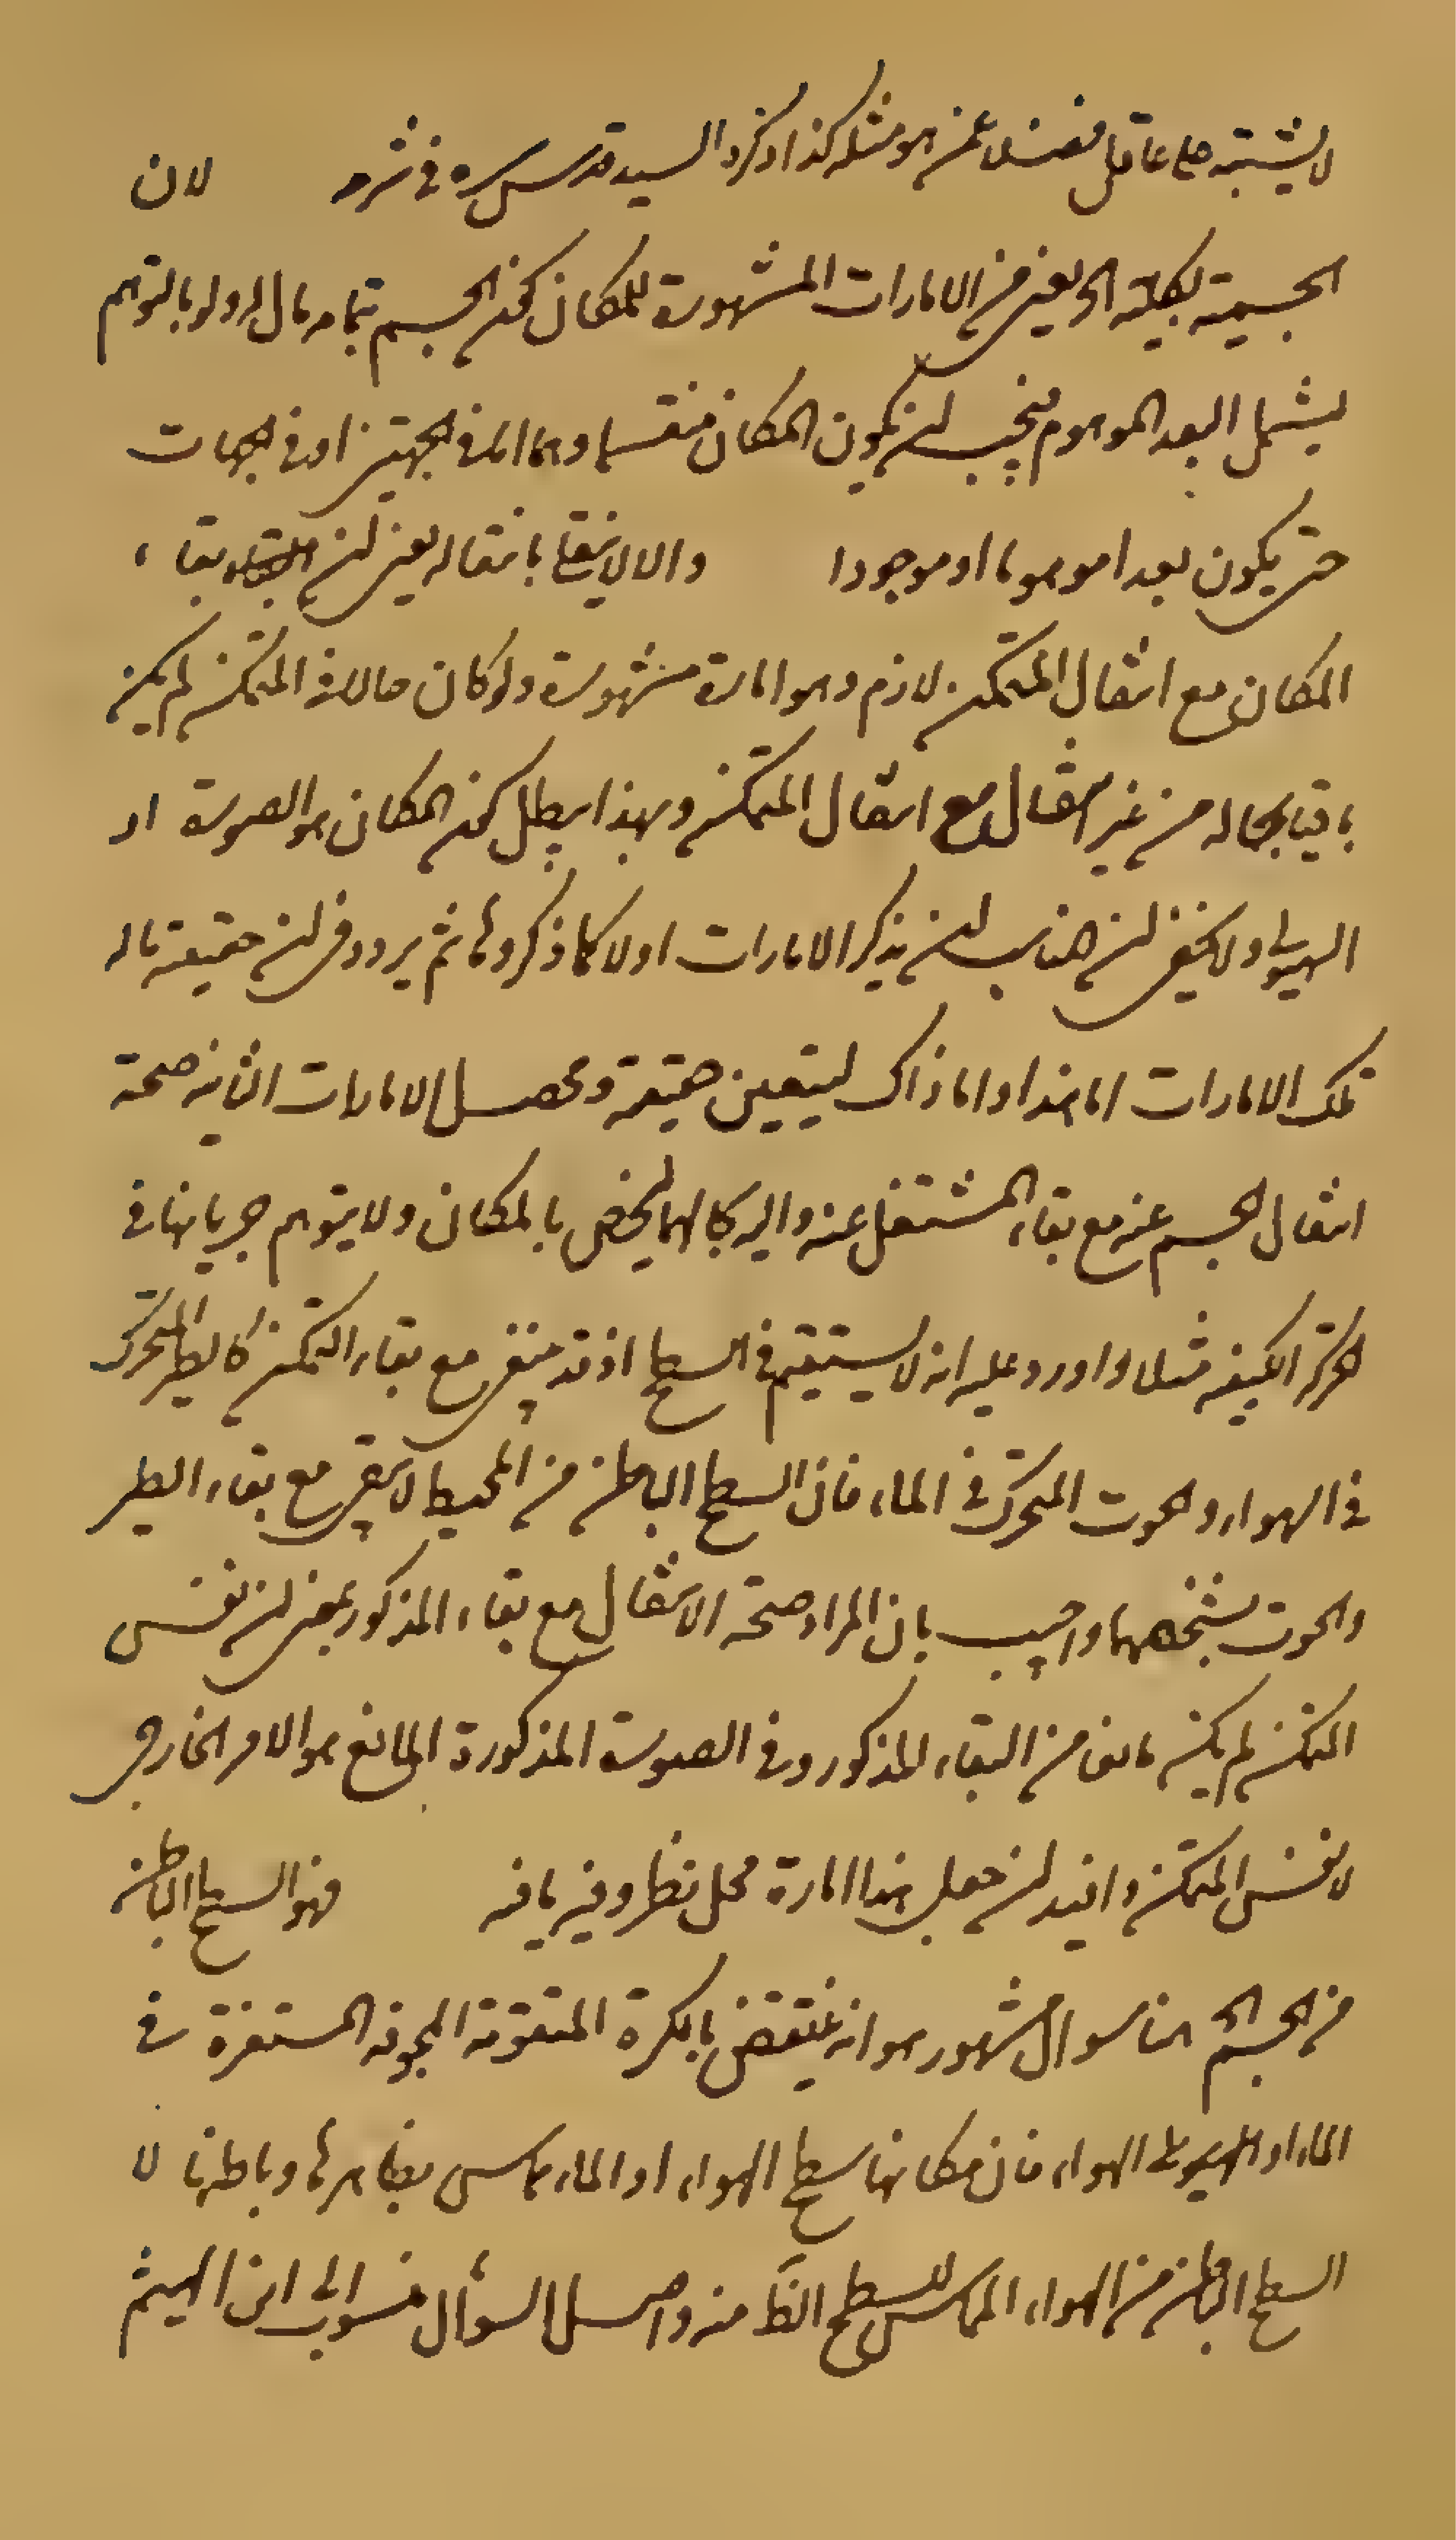 لا يشتبه على عاقل فضلا عمن هو مثله كذا ذكره السيد قدس سره في شرحه لان
الجسمية بكليته الخ يعني من الامارات المشهورة للمكان كون الجسم بتمامه مال اليه ولو بالتوهم
ليشمل البعد الموهوم فيجب ان يكون المكان منقسما وهما اما في الجهتين او في الجهات
حتى يكون بعدا موهوما او موجودا والا لانتقل بانتقاله يعني ان بقاء
المكان مع انتقال المتمكن لازم وهو امارة مشهورة ولو كان حالا في المتمكن لم يكن
باقيا بحاله من غير انتقال مع انتقال المتمكن وبهذا يبطل كون المكان هو الصورة او
الهيولى ولا يخفى ان المناسب ان يذكر الامارات اولا كما ذكروها ثم يردد في ان حقيقة ماله
تلك الامارات اما هذا واما ذاك ليتعين حقيقته ومحصل الامارات الثانية صحة
انتقال الجسم عنه مع بقاء المنتقل عنه واليه بحالهما ليختص بالمكان ولا يتوهم جريانها في
الحركة الكيفية مثلا واورد عليه انه لا يستقيم في السطح اذ قد ينتفي مع بقاء المتمكن كالطير المتحرك
في الهواء والحوت المتحرك في الماء فان السطح الباطن من المحيط لا يبقى مع بقاء الطير
والحوت بشخصهما واجيب بان المراد صحة الانتقال مع بقاء المذكور بمعنى ان نفس
المتمكن لم يكن مانعا من البقاء المذكور وفي الصورة المذكورة المانع هو الامر الخارجي
لا نفس المتمكن وافيد ان جعل هذا امارة محل نظر وفيه ما فيه فهو السطح الباطن
من الجسم الخ هنا سؤال مشهور هو انه ينتقض بالكرة المثقوبة المجوفة المستقرة في
الماء او الهواء فان مكانها سطح الهواء او الماء يماس بظاهرها وباطنها لا
السطح الباطن من الهواء المماس للسطح الظ منه واصل السؤال منسوب الى ابن الهيثم